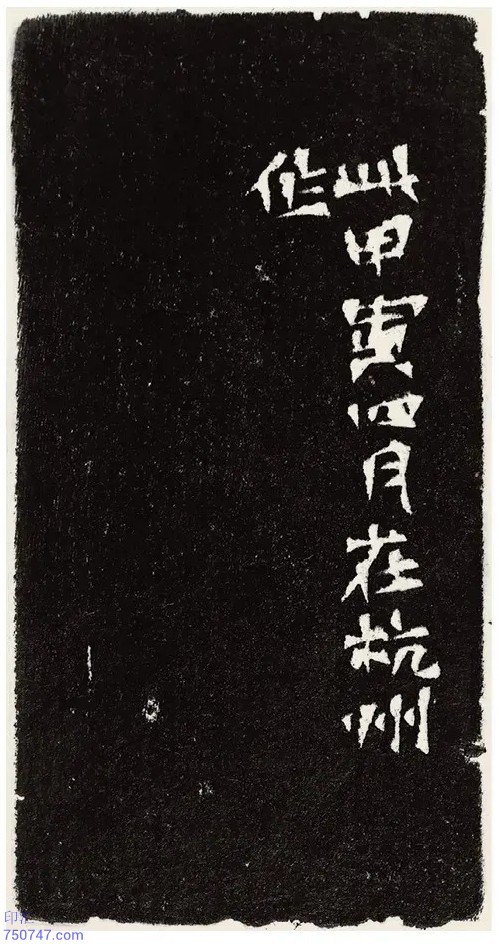 此甲寅四月在杭州
作
印
750747.com